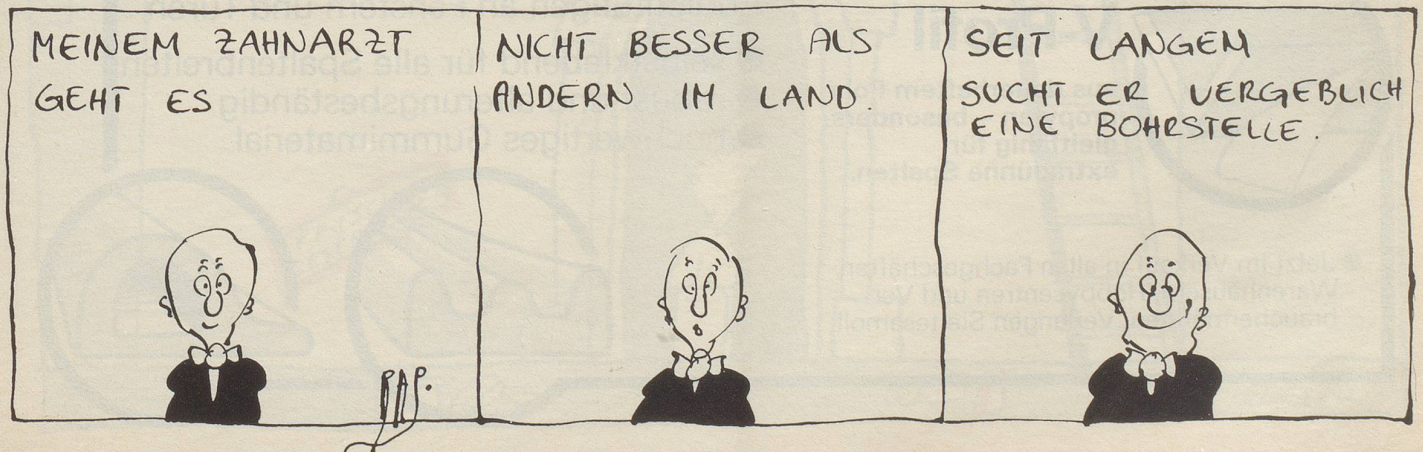 MEINEM ZAHNARZT
GEHT ES
NICHT BESSER ALS
ANDERN IM LAND
SEIT LANGEM
SUCHT ER VERGEBLICH
EINE BOHRSTELLE.
RAP.